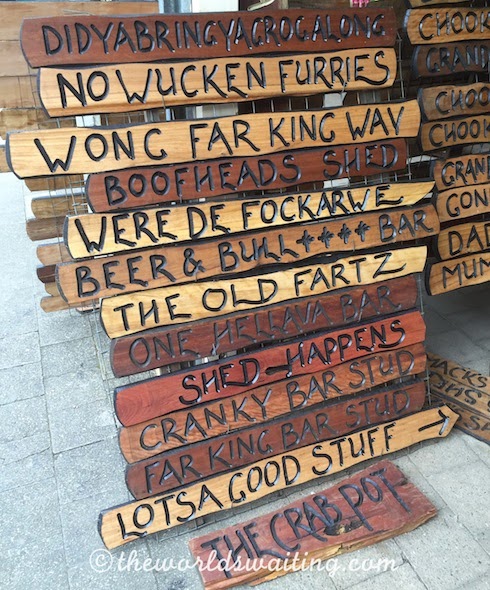 DIDYABRINGYAGROGALONG
NO WUCKEN FURRIES
WONG FAR KING WAY
BOOFHEADS SHED
WERE DE FOCKARWE
BEER & BULL++++ BAR
THE OLD FARTZ
ONE HELLAVA BAR
SHED-HAPPENS
CRANKY BAR STUD
FAR KING BAR STUD
LOTSA GOOD STUFF →
THE CRAB POT
CHOOK
GRAND
CHOO
CHOOK
GRAN
GON
DAD
MUM
©theworldswaiting.com